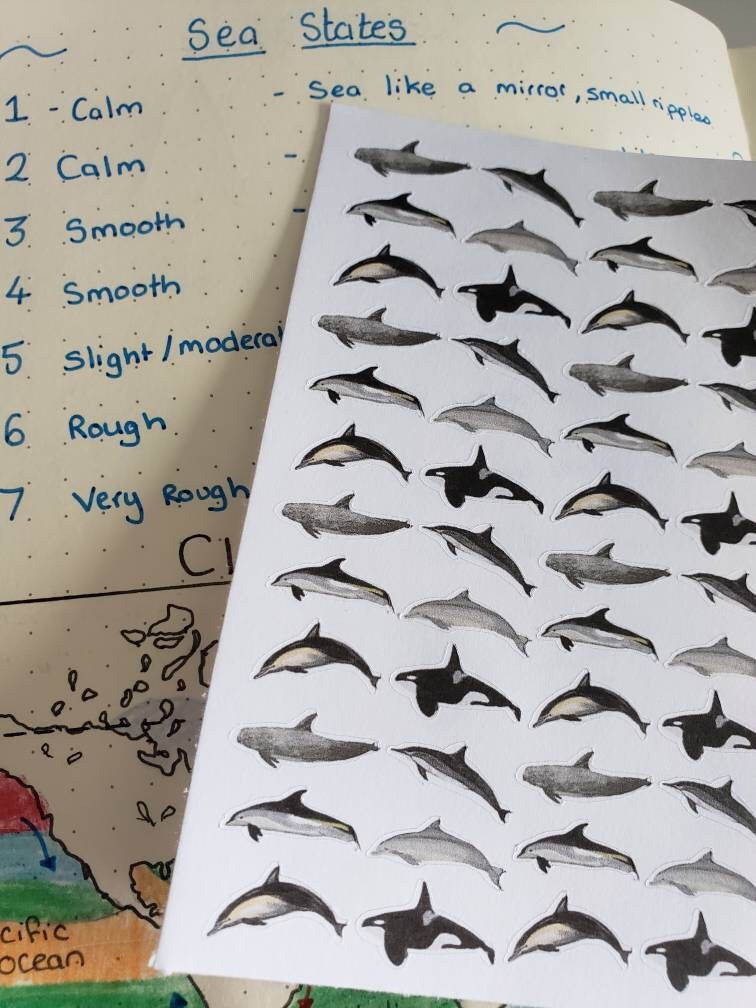 Sea States
1 - Calm - Sea like a mirror, small ripples
2 Calm -
3 Smooth -
4 Smooth
5 Slight/modera
6 Rough
7 Very Rough
Cl
cific
ocean